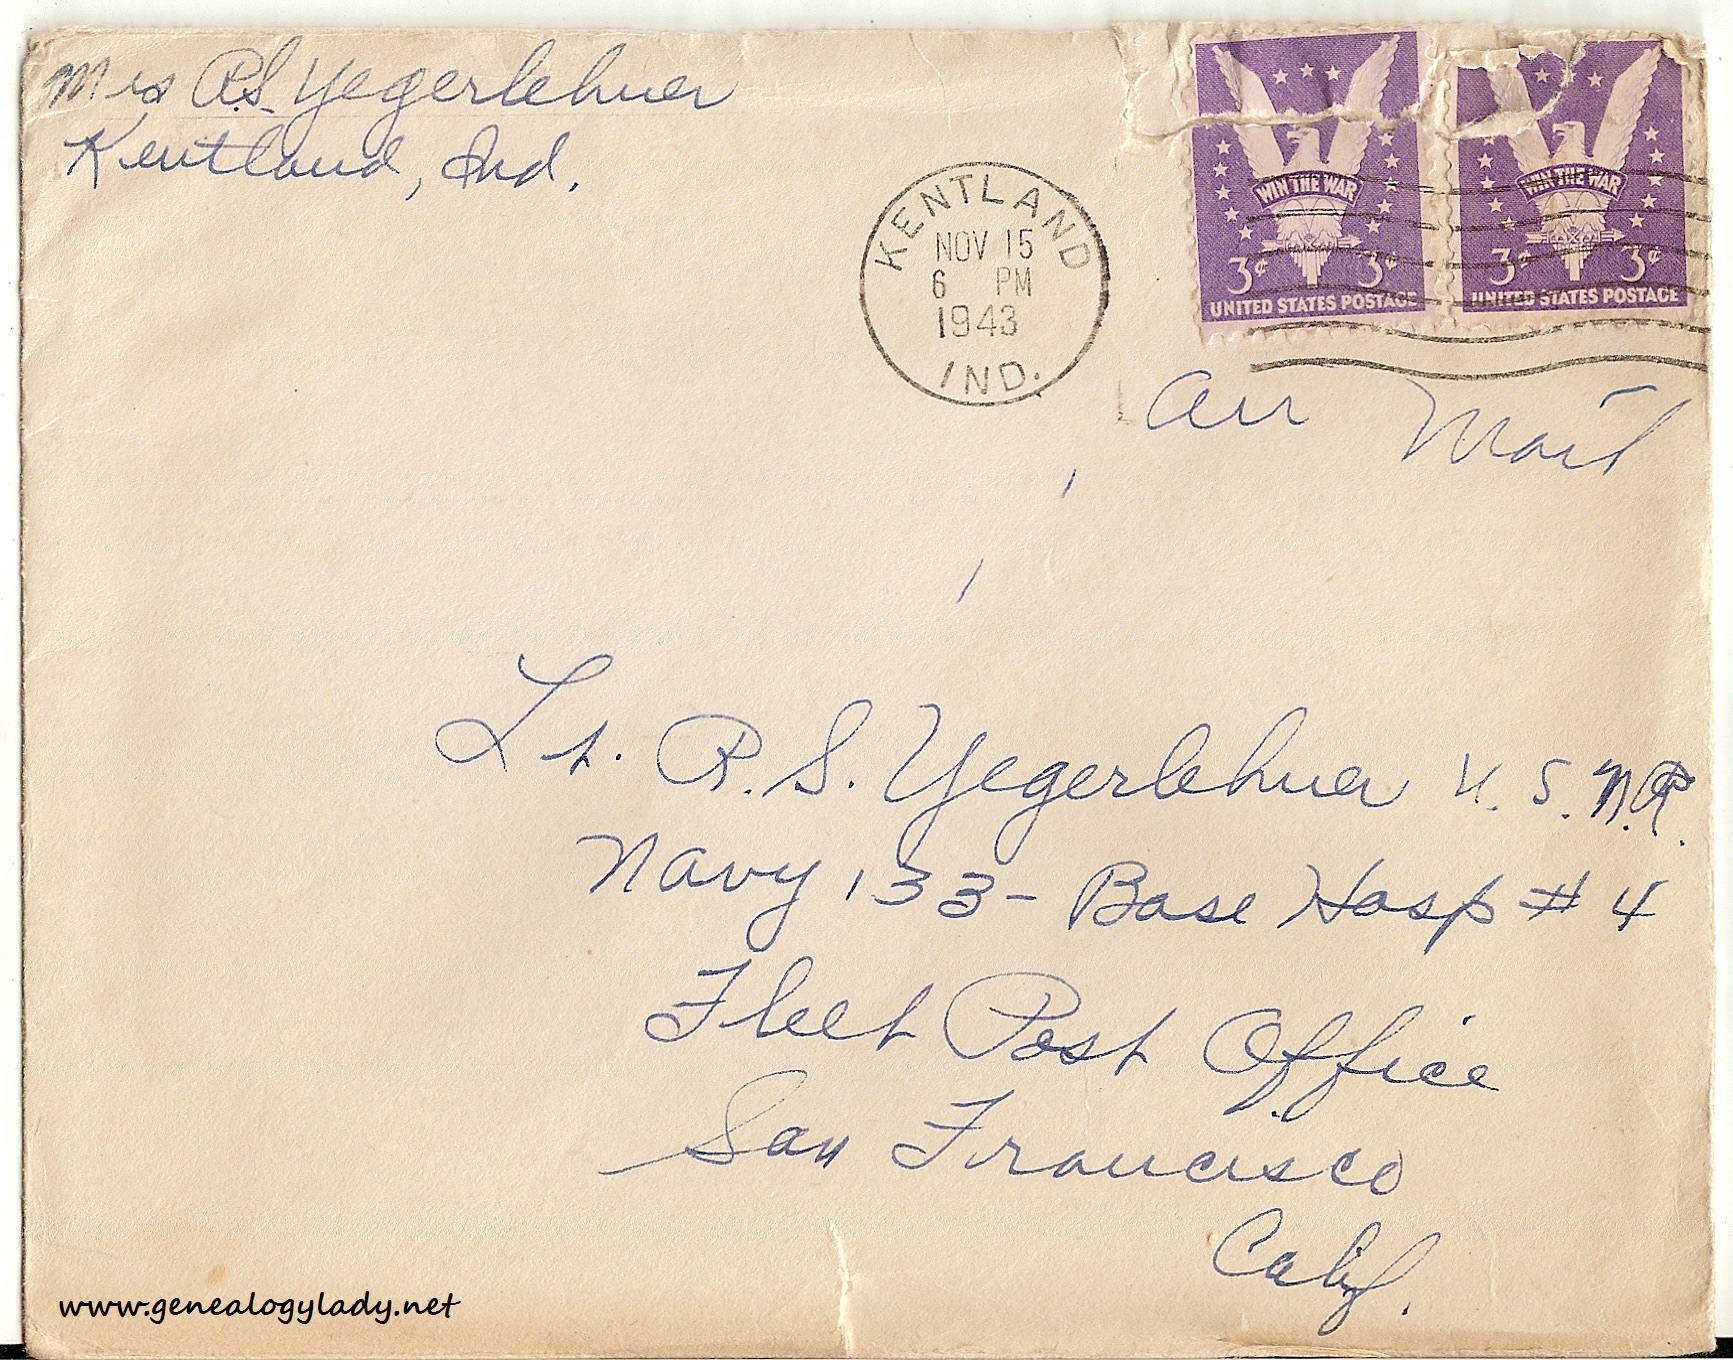 Mrs R.S. Yegerlehner
Kentland, Ind.
KENTLAND
NOV 15
6 PM
1943
IND.
WIN THE WAR
3¢ 3¢
UNITED STATES POSTAGE
WIN THE WAR
3¢ 3¢
UNITED STATES POSTAGE
Air Mail
Lt. R.S. Yegerlehner U.S.N.R.
Navy 133- Base Hosp # 4
Fleet Post Office
San Francisco
Calif.
www.genealogylady.net